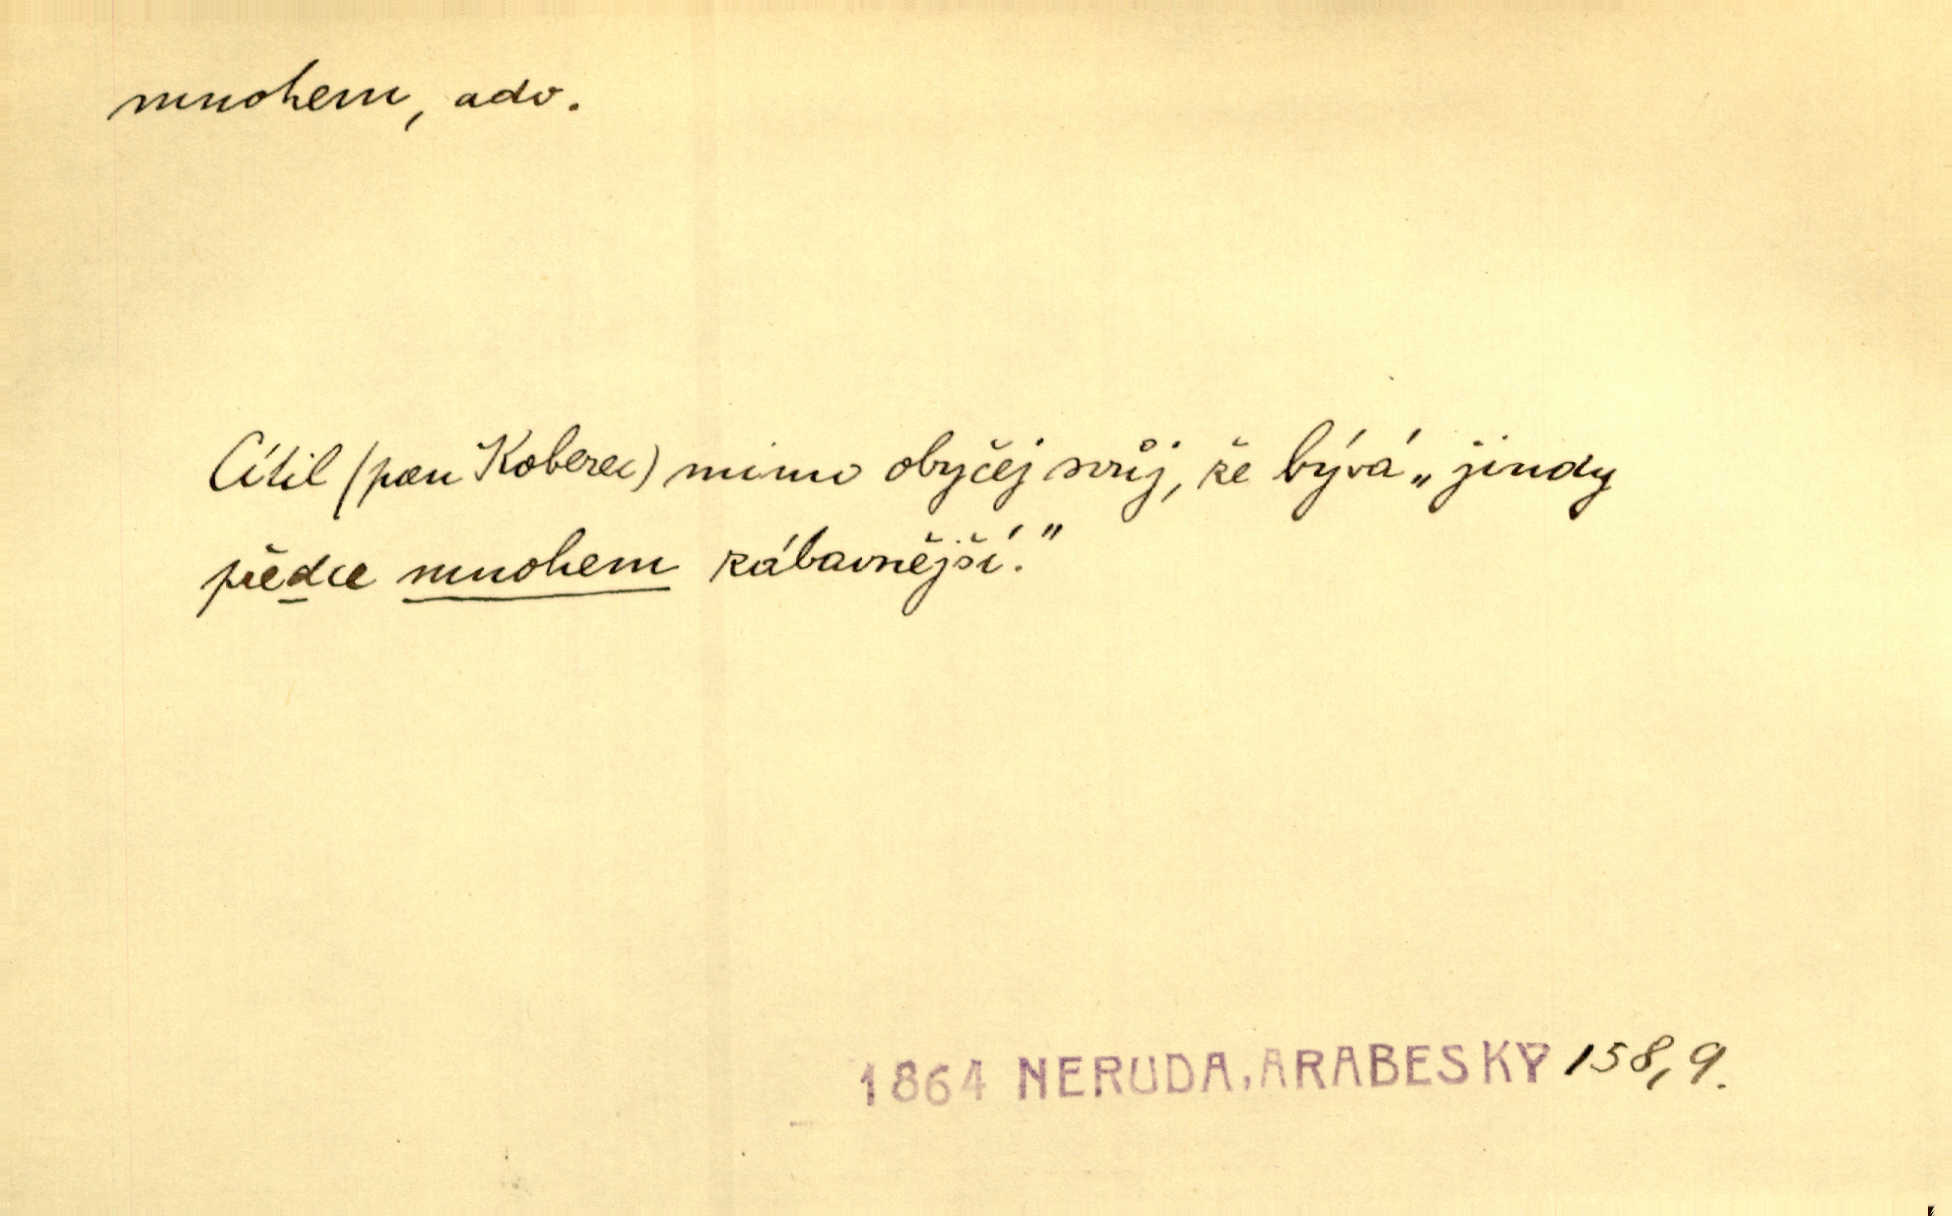 mnohem, adv.
Cítil (pan Koberec) mimo obyčej svůj, že bývá „jindy
předce mnohem zábavnější."
1864 NERUDA, ARABESKY 158, 9.